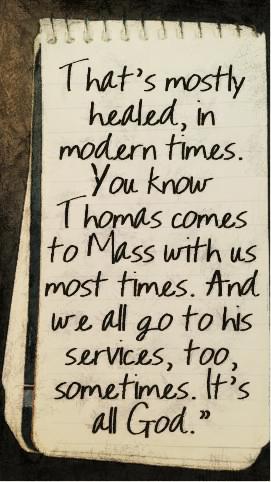 That's mostly
healed, in
modern times.
You know
Thomas comes
to Mass with us
most times. And
we all go to his
services, too,
sometimes. It's
all God."